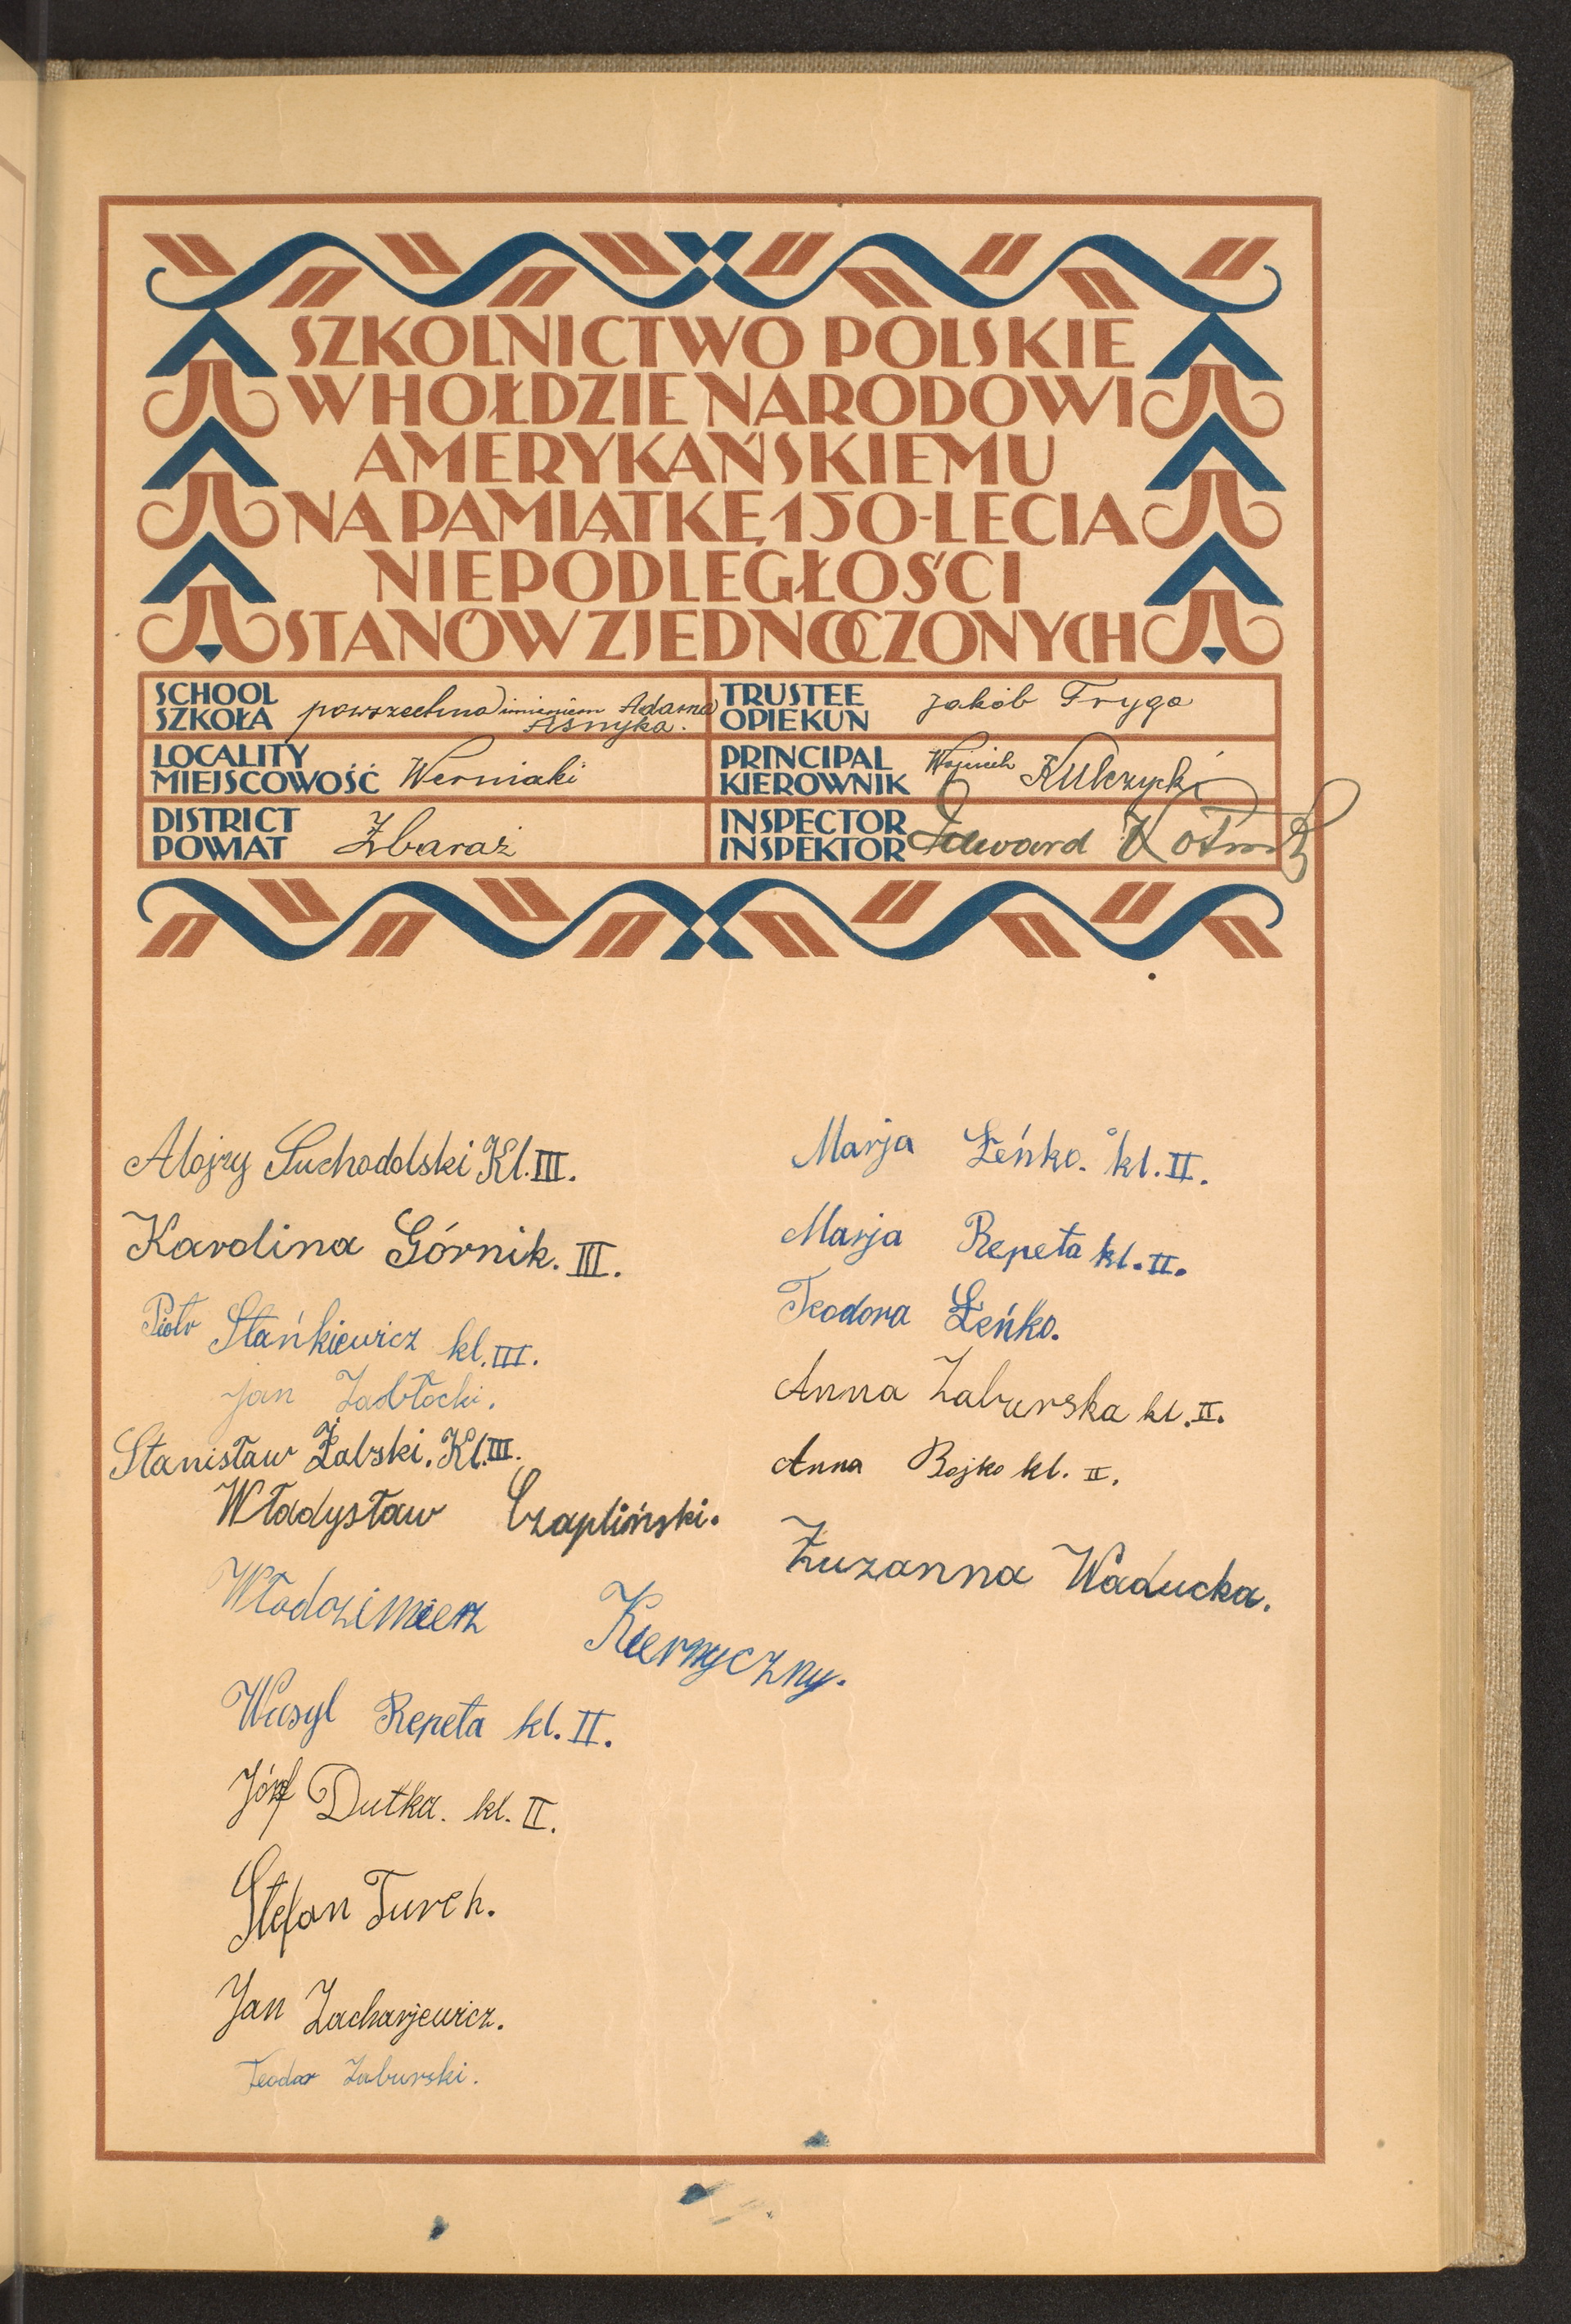 SZKOLNICTWO POLSKIE
W HOŁDZIE NARODOWI
AMERYKAŃSKIEMU
NA PAMIĄTKĘ 150-LECIA
NIEPODLEGŁOŚCI
STANÓW ZJEDNOCZONYCH
SCHOOL
SZKOŁA
powszechna imieniem Adama
Asnyka.
TRUSTEE
OPIEKUN
Jakób Fryga
LOCALITY
MIEJSCOWOŚĆ
Werniaki
PRINCIPAL
KIEROWNIK
Wojciech Kulczycki
DISTRICT
POWIAT
Zbaraż
INSPECTOR
INSPEKTOR
Edward
Alojzy Suchodolski Kl. III.
Karolina Górnik. III.
Piotr Stańkiewicz kl. III.
Jan Zabłocki.
Stanisław Żabski. Kl. III.
Władysław Czapliński.
Włodzimierz Kiernyczny.
Wasyl Repeta kl. II.
Józef Dutka. kl. II.
Stefan Turch.
Jan Zacharjewicz.
Teodor Zaburski.
Marja Łeńko. kl. II.
Marja Repeta kl. II.
Teodora Łeńko.
Anna Zaburska kl. II.
Anna Bojko kl. II.
Zuzanna Waducka.